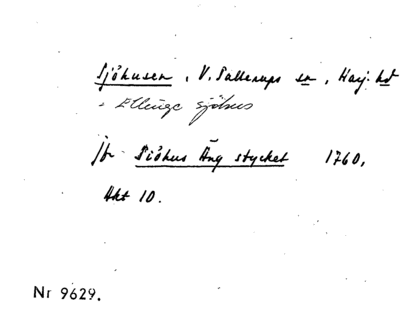 Sjöhusen, V. Sallerups sn, Harj. hd
- Ellinge sjöhus
jfr Siöhus Äng stycket 1760,
Akt 10.
Nr 9629.